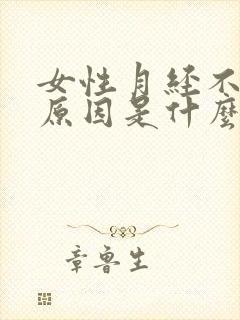 女性月经不
原因是什麼
章鲁生